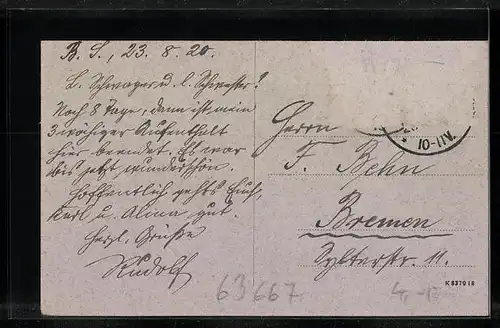 B. S., 23. 8. 20.
L. Schwager u. l. Schwester!
Noch 8 Tage, dann ist mein
3 wöchiger Aufenthalt
hier beendet. Es war
bis jetzt wunderschön.
Hoffentlich gehts Euch,
Karl u. Alma gut.
Herzl. Grüße
Rudolf
Herrn
F. Behn
Bremen
Sylterstr. 11.
* 10-11V.
K 83701 B
63667
4,-